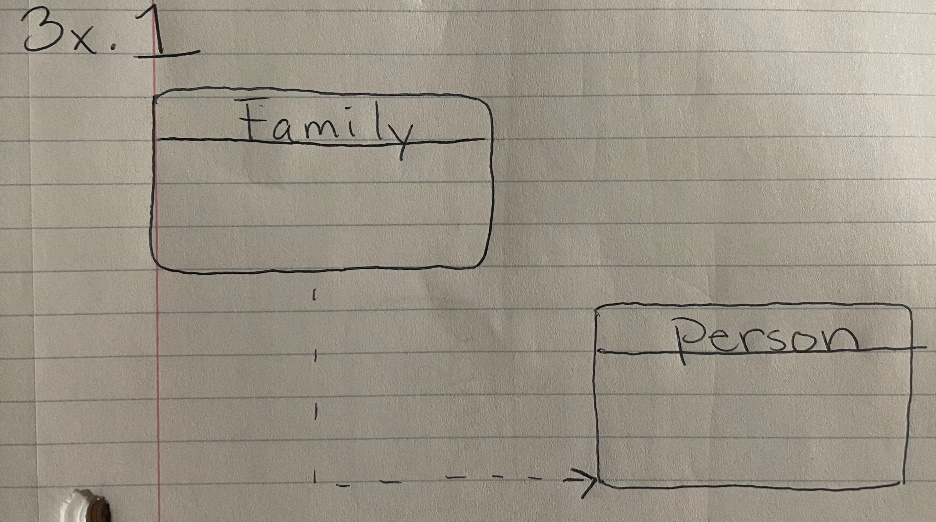 3x. 1
Family
Person